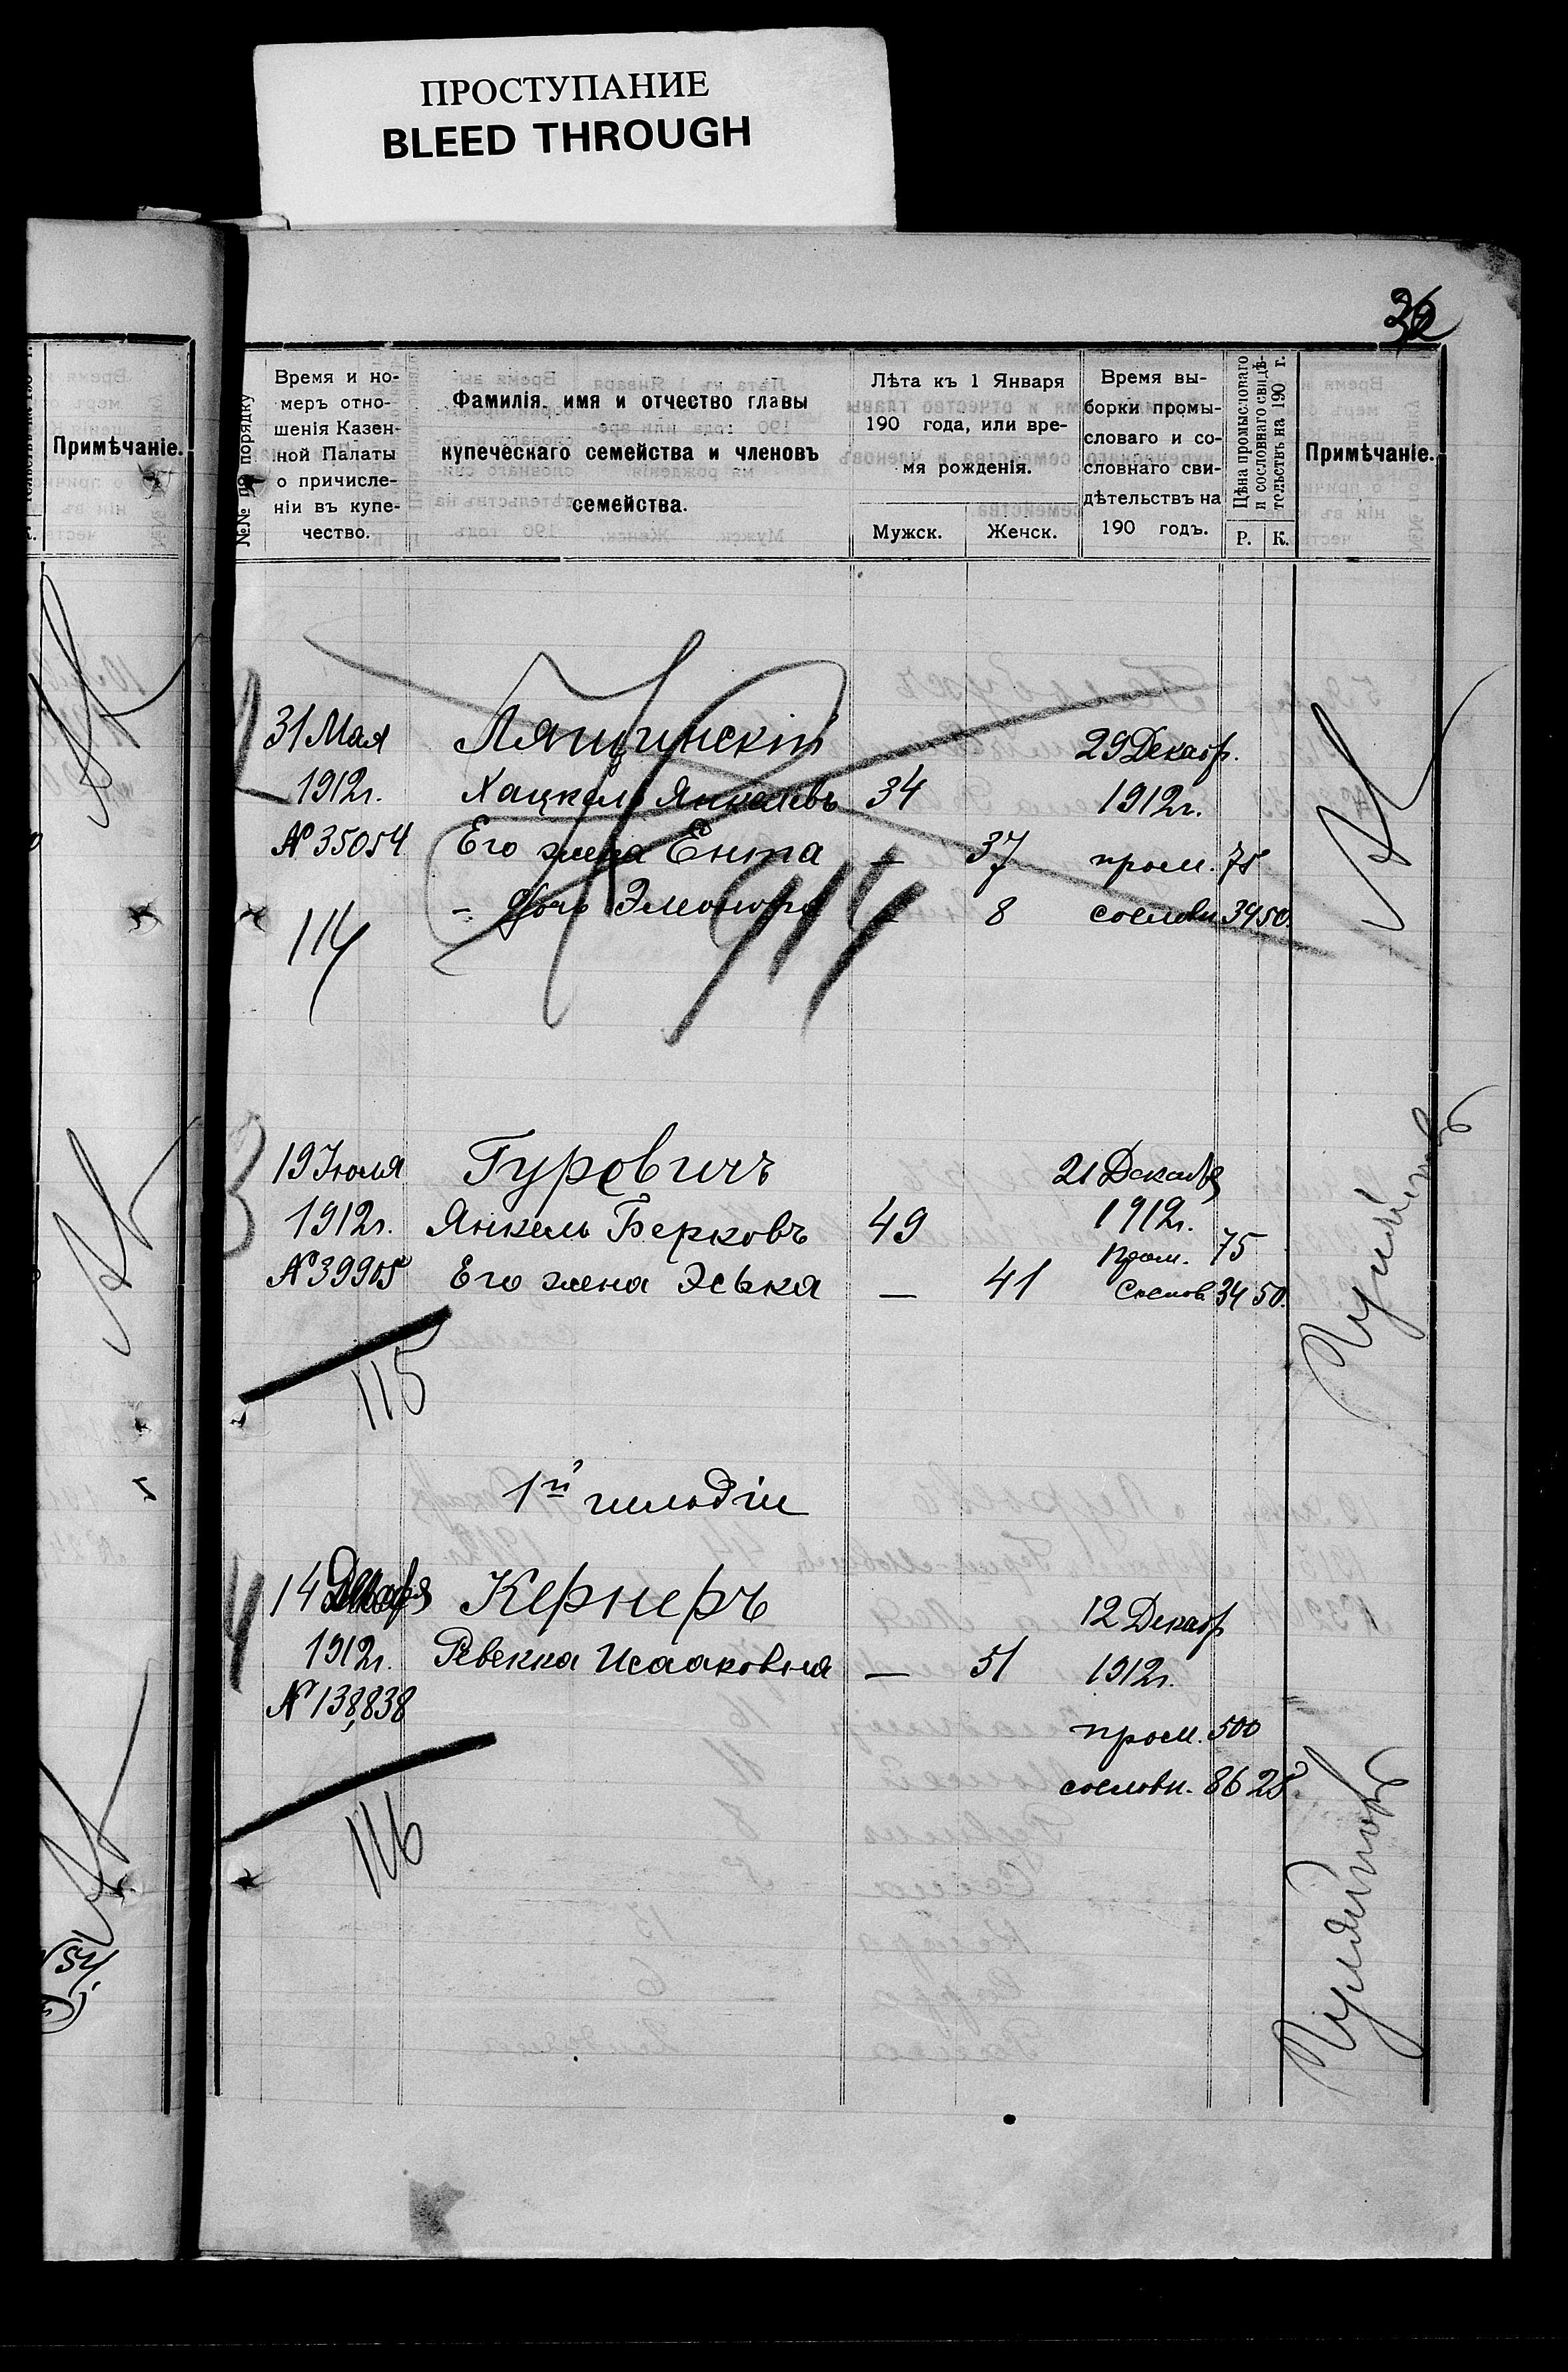 ПРОСТУПАНИЕ
BLEED THROUGH
Примѣчаніе.
№№ по порядку
Время и но-
меръ отно-
шенія Казен-
ной Палаты
о причисле-
ніи въ купе-
чество.
Фамилія, имя и отчество главы
купеческаго семейства и членовъ
семейства.
Лѣта къ 1 Января
190 года, или вре-
мя рожденія.
Мужск. Женск.
Время вы-
борки промы-
словаго и со-
словнаго сви-
дѣтельствъ на
190 годъ.
Цѣна промысловаго
и сословнаго свидѣ-
тельствъ на 190 г.
Р. К.
Примѣчаніе.
31 Мая
1912г.
№ 35054
114
Хацкель Янкелевъ 34
Его жена Ента — 37
- дочь 8
29 Декабр.
1912г.
пром. 75
сословн 34 50.
114
3
19 Іюля
1912г.
№ 39905
115
Гуровичъ
Янкель Берковъ 49
Его жена Эська — 41
21 Декабря
1912г.
пром. 75
Сослов 34 50.
1й гильдіи
4
14 Декабря
1912г.
№ 138,838
116
Кернеръ
Ревекка Исааковна — 51
12 Декабр
1912г.
пром. 500
сословн. 86 25